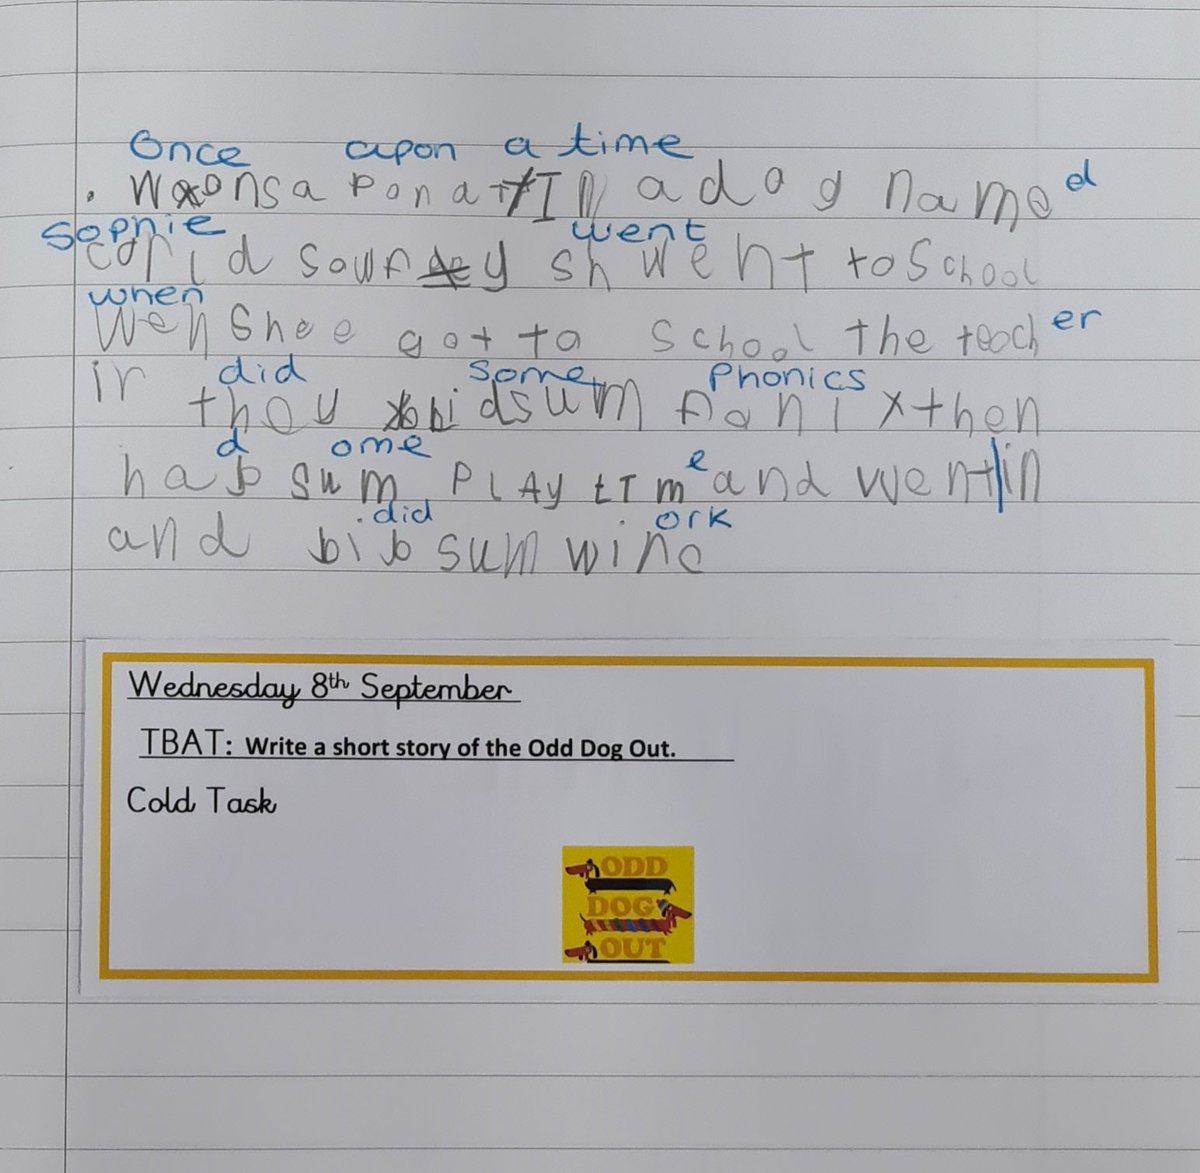 Once apon a time
a dog named
Sophie
went
sh went to School
when
Wen Shee got to School the teach er
ir
did some Phonics
they bid sum then
d ome
hab sum PLAY tIm e and went in
did ork
and bib sum
Wednesday 8th September
TBAT: Write a short story of the Odd Dog Out.
Cold Task
ODD
DOG
OUT